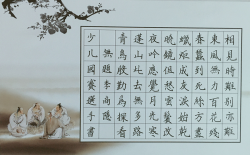 相見時難別亦難
東風無力百花殘
春蠶到死絲方盡
蠟炬成灰淚始乾
曉鏡但愁雲鬢改
夜吟應覺月光寒
蓬山此去無多路
青鳥殷勤為探看
無題
少兒國賽選手書